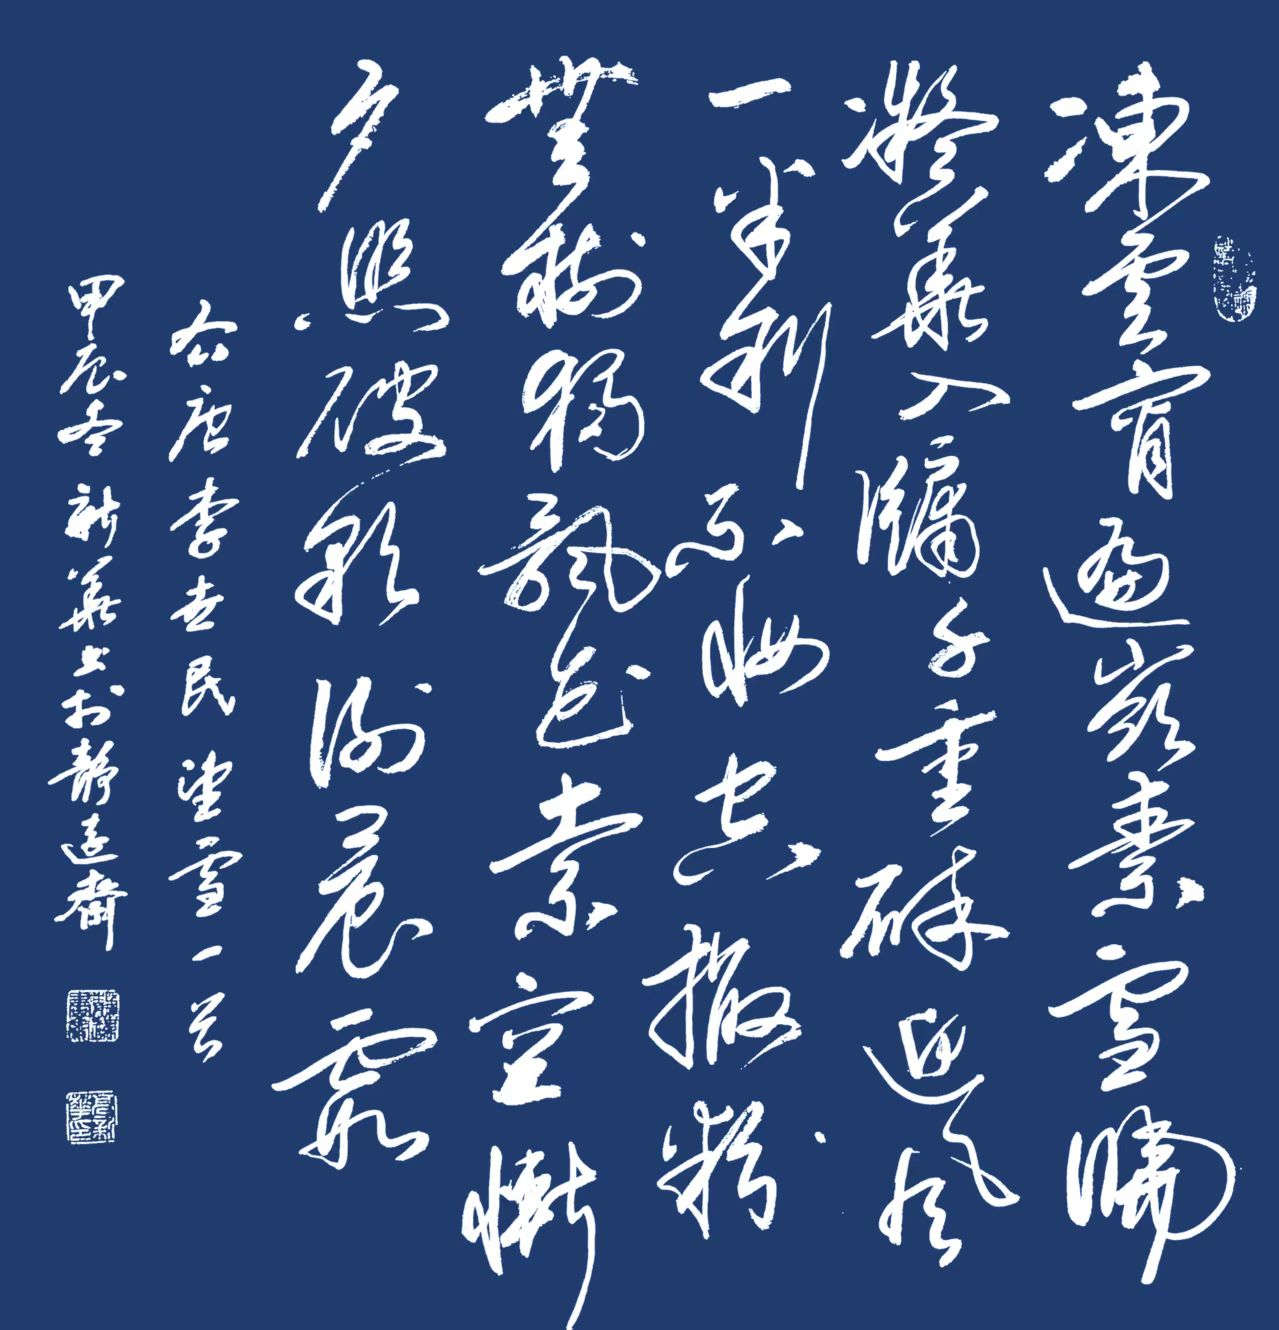 凍雲宵遍嶺素雪曉
凝華入牖千重碎迎風
一半斜不妝空撒粉
無樹獨飄花索空慚
夕照破彩謝晨霞
右唐李世民望雪一首
甲辰冬新華書於靜遠齋